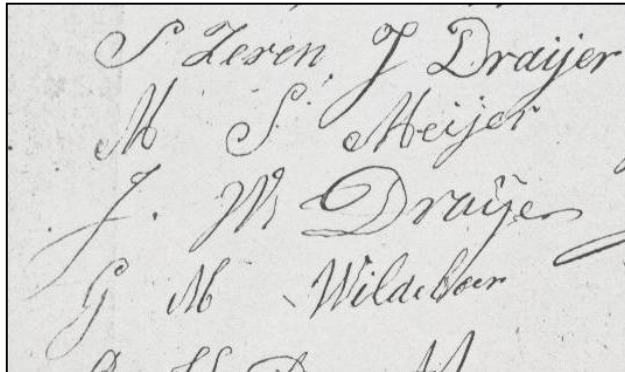 S Zeren, J Draijer
M S. Meijer
J. W Draijer
G M Wildeboer